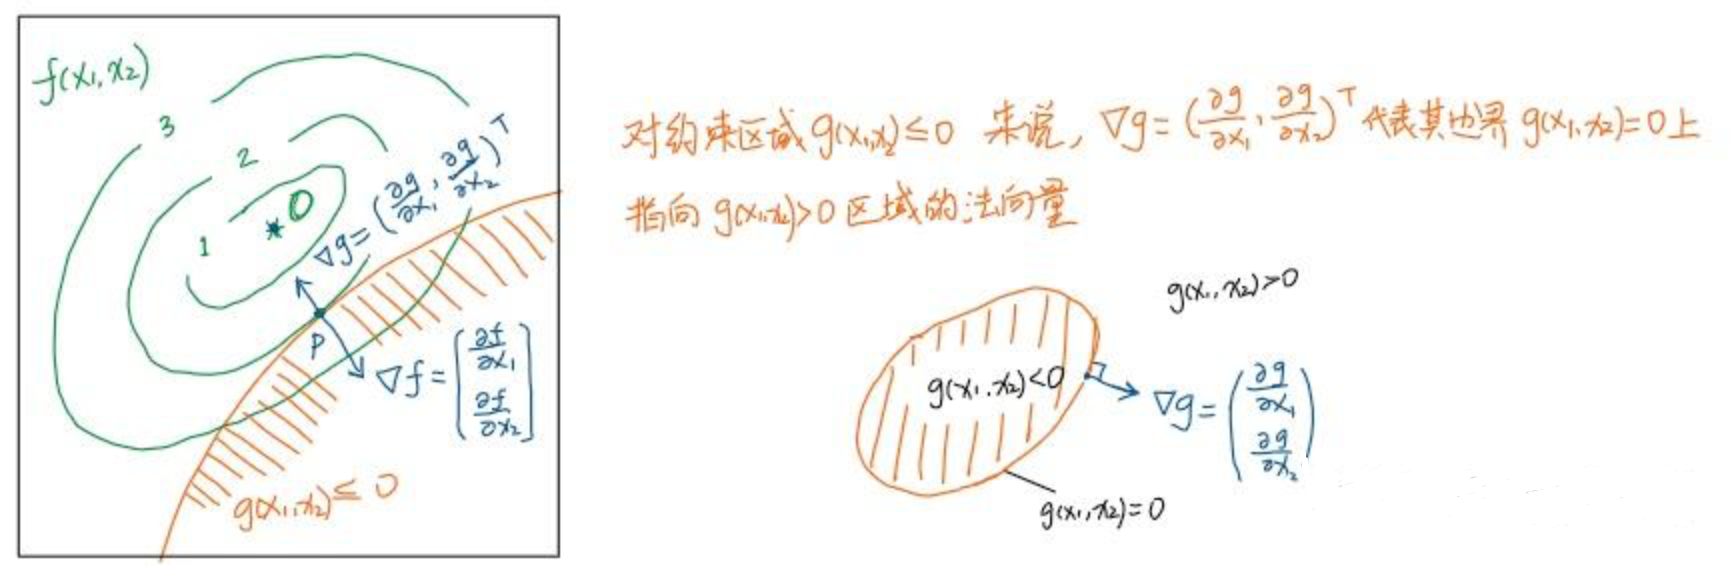 f(x₁,x₂)
3
2
1
0
∇g=(∂g/∂x₁, ∂g/∂x₂)ᵀ
P
∇f=[∂f/∂x₁ ∂f/∂x₂]
g(x₁,x₂)≤0
对约束区域g(x₁,x₂)≤0 来说, ∇g=(∂g/∂x₁, ∂g/∂x₂)ᵀ代表其边界 g(x₁,x₂)=0上
指向 g(x₁,x₂)>0区域的法向量
g(x₁,x₂)>0
g(x₁,x₂)<0
∇g=(∂g/∂x₁ ∂g/∂x₂)
g(x₁,x₂)=0